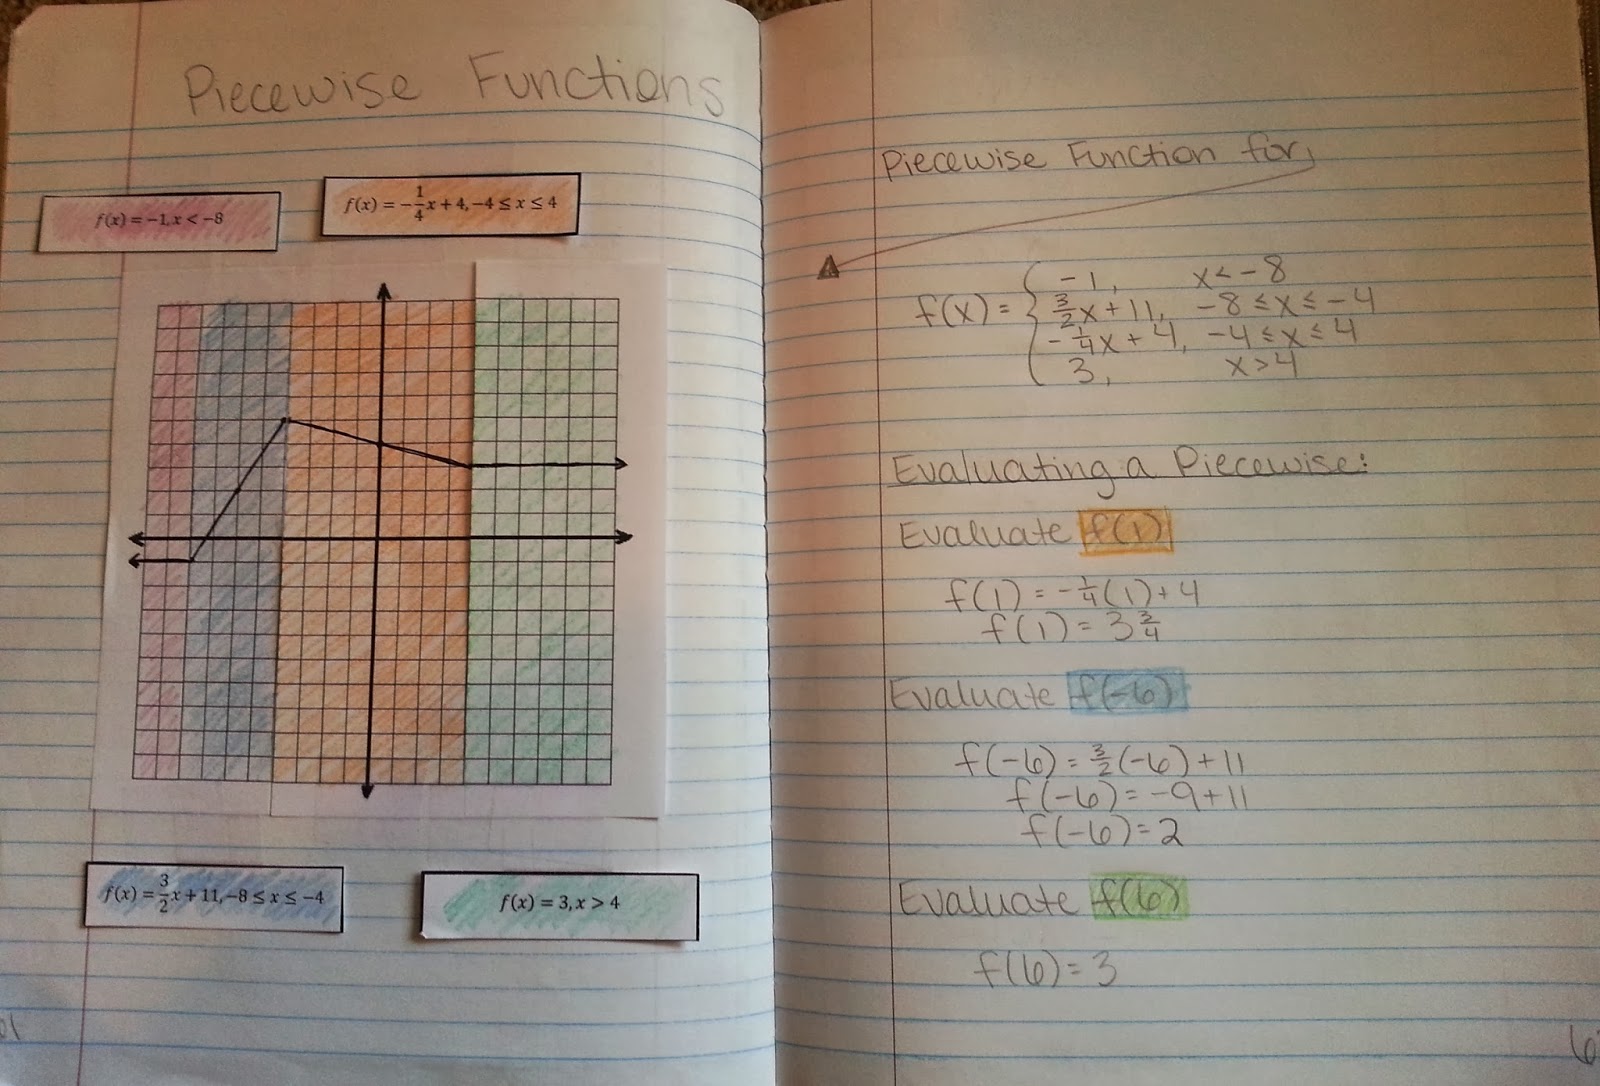 Piecewise Functions
f(x) = −1, x < −8
f(x) = −1/4x + 4, −4 ≤ x ≤ 4
f(x) = 3/2x + 11, −8 ≤ x ≤ −4
f(x) = 3, x > 4
Piecewise Function for,
f(x) = { −1, x < −8
3/2x + 11, −8 ≤ x ≤ −4
−1/4x + 4, −4 ≤ x ≤ 4
3, x > 4
Evaluating a Piecewise:
Evaluate f(1)
f(1) = −1/4(1) + 4
f(1) = 3 3/4
Evaluate f(−6)
f(−6) = 3/2(−6) + 11
f(−6) = −9 + 11
f(−6) = 2
Evaluate f(6)
f(6) = 3